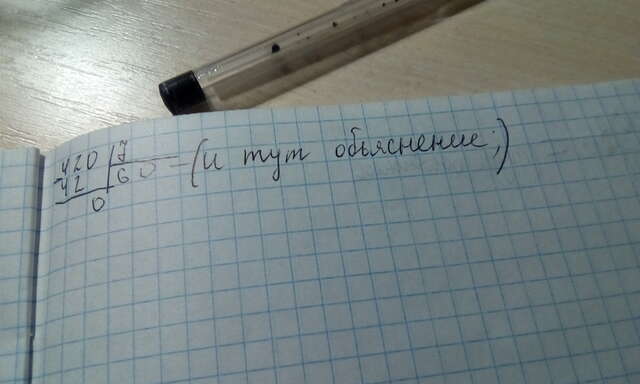 420 7
42 60 - (и тут объяснение;)
0